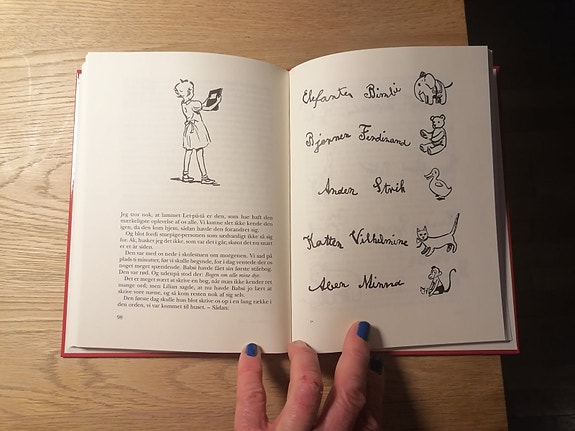 Jeg stor nok, at lammet Let-på-tå er den, som har haft den
mærkeligste oplevelse af os alle. Vi kunne slet ikke kende den
igen, da den kom hjem, sådan havde den forandret sig.
Og blot fordi snurpige-personen så sædvanlig ikke så sig
for. Ak, husker jeg det ikke, som var det i går, skønt det nu snart
er et år siden.
Den var med os nede i skolestuen om morgenen. Vi sad på
plads 5 minutter, før vi skulle begynde, for i dag ventede der os
noget meget spændende. Babsi havde fået sin første stilebog.
Den var rød. Og udenpå stod der: Bogen om alle mine dyr.
Det er meget svært at skrive en bog, når man ikke kender ret
mange ord; men Lilian sagde, at nu havde Babsi jo lært at
skrive vore navne, og så kom resten nok af sig selv.
Den første dag skulle hun blot skrive os op i en lang række i
den orden, vi var kommet til huset. – Sådan:
90
Elefanten Bimbi
Bjørnen Ferdinand
Anden Strik
Katten Vilhelmine
Aben Minna